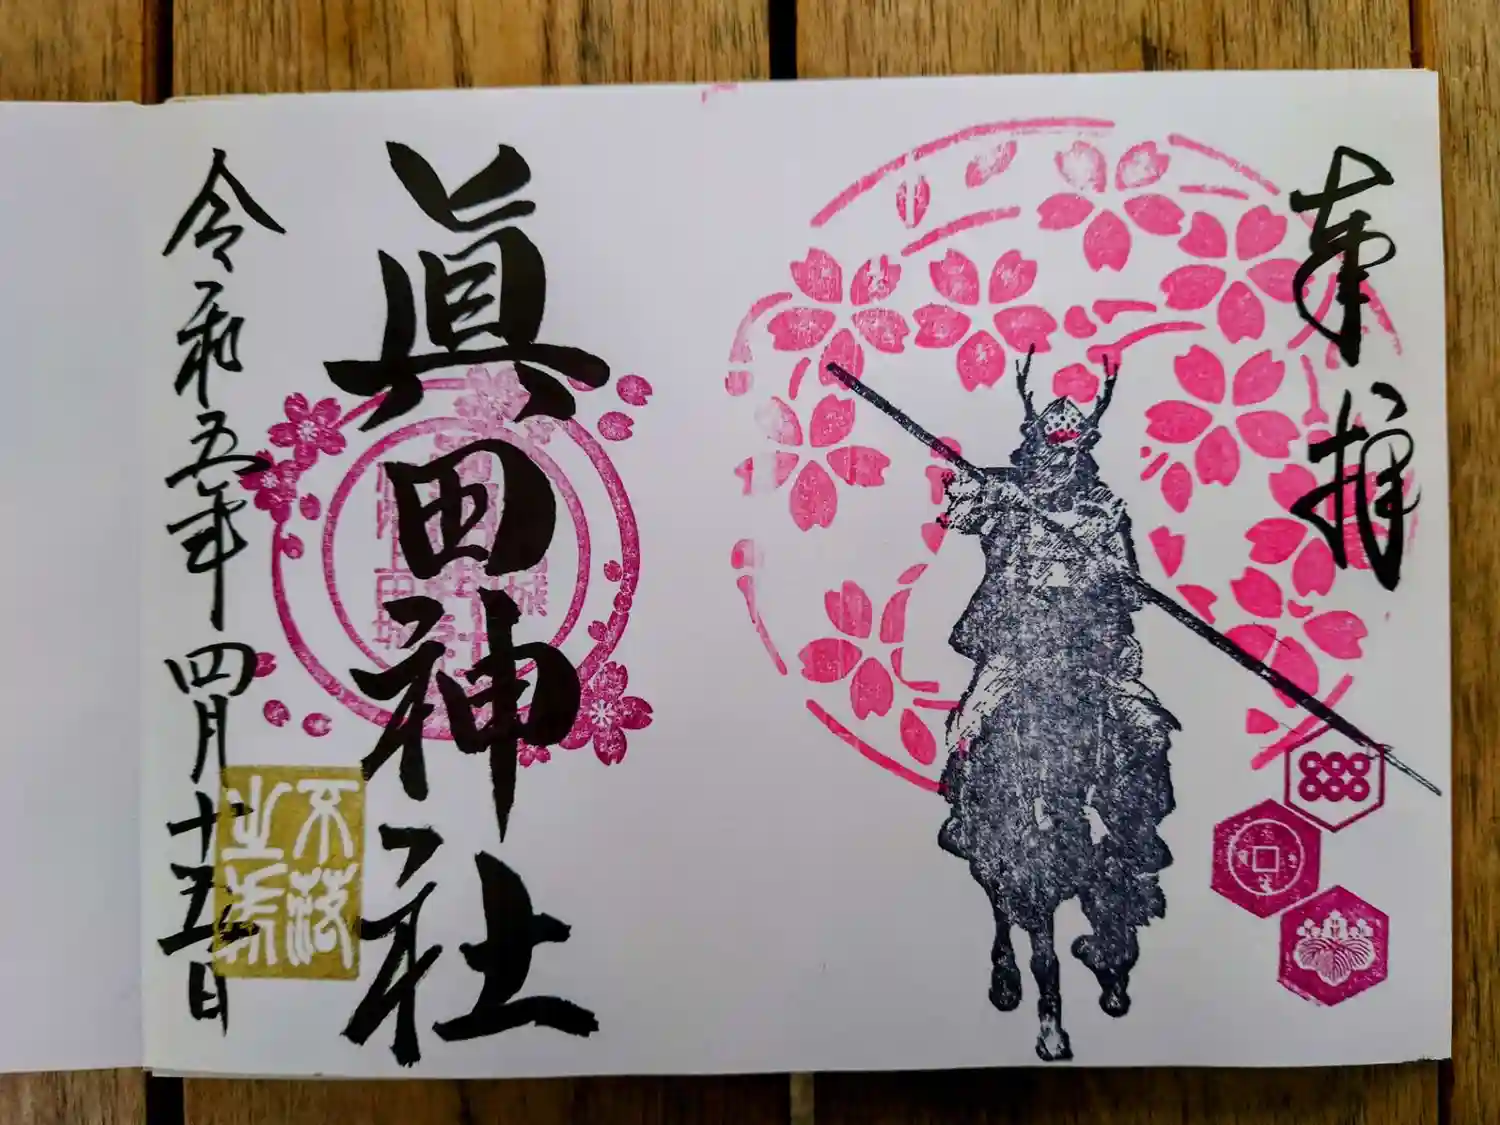 奉拝
眞田神社
不落
之砦
令和五年四月十五日